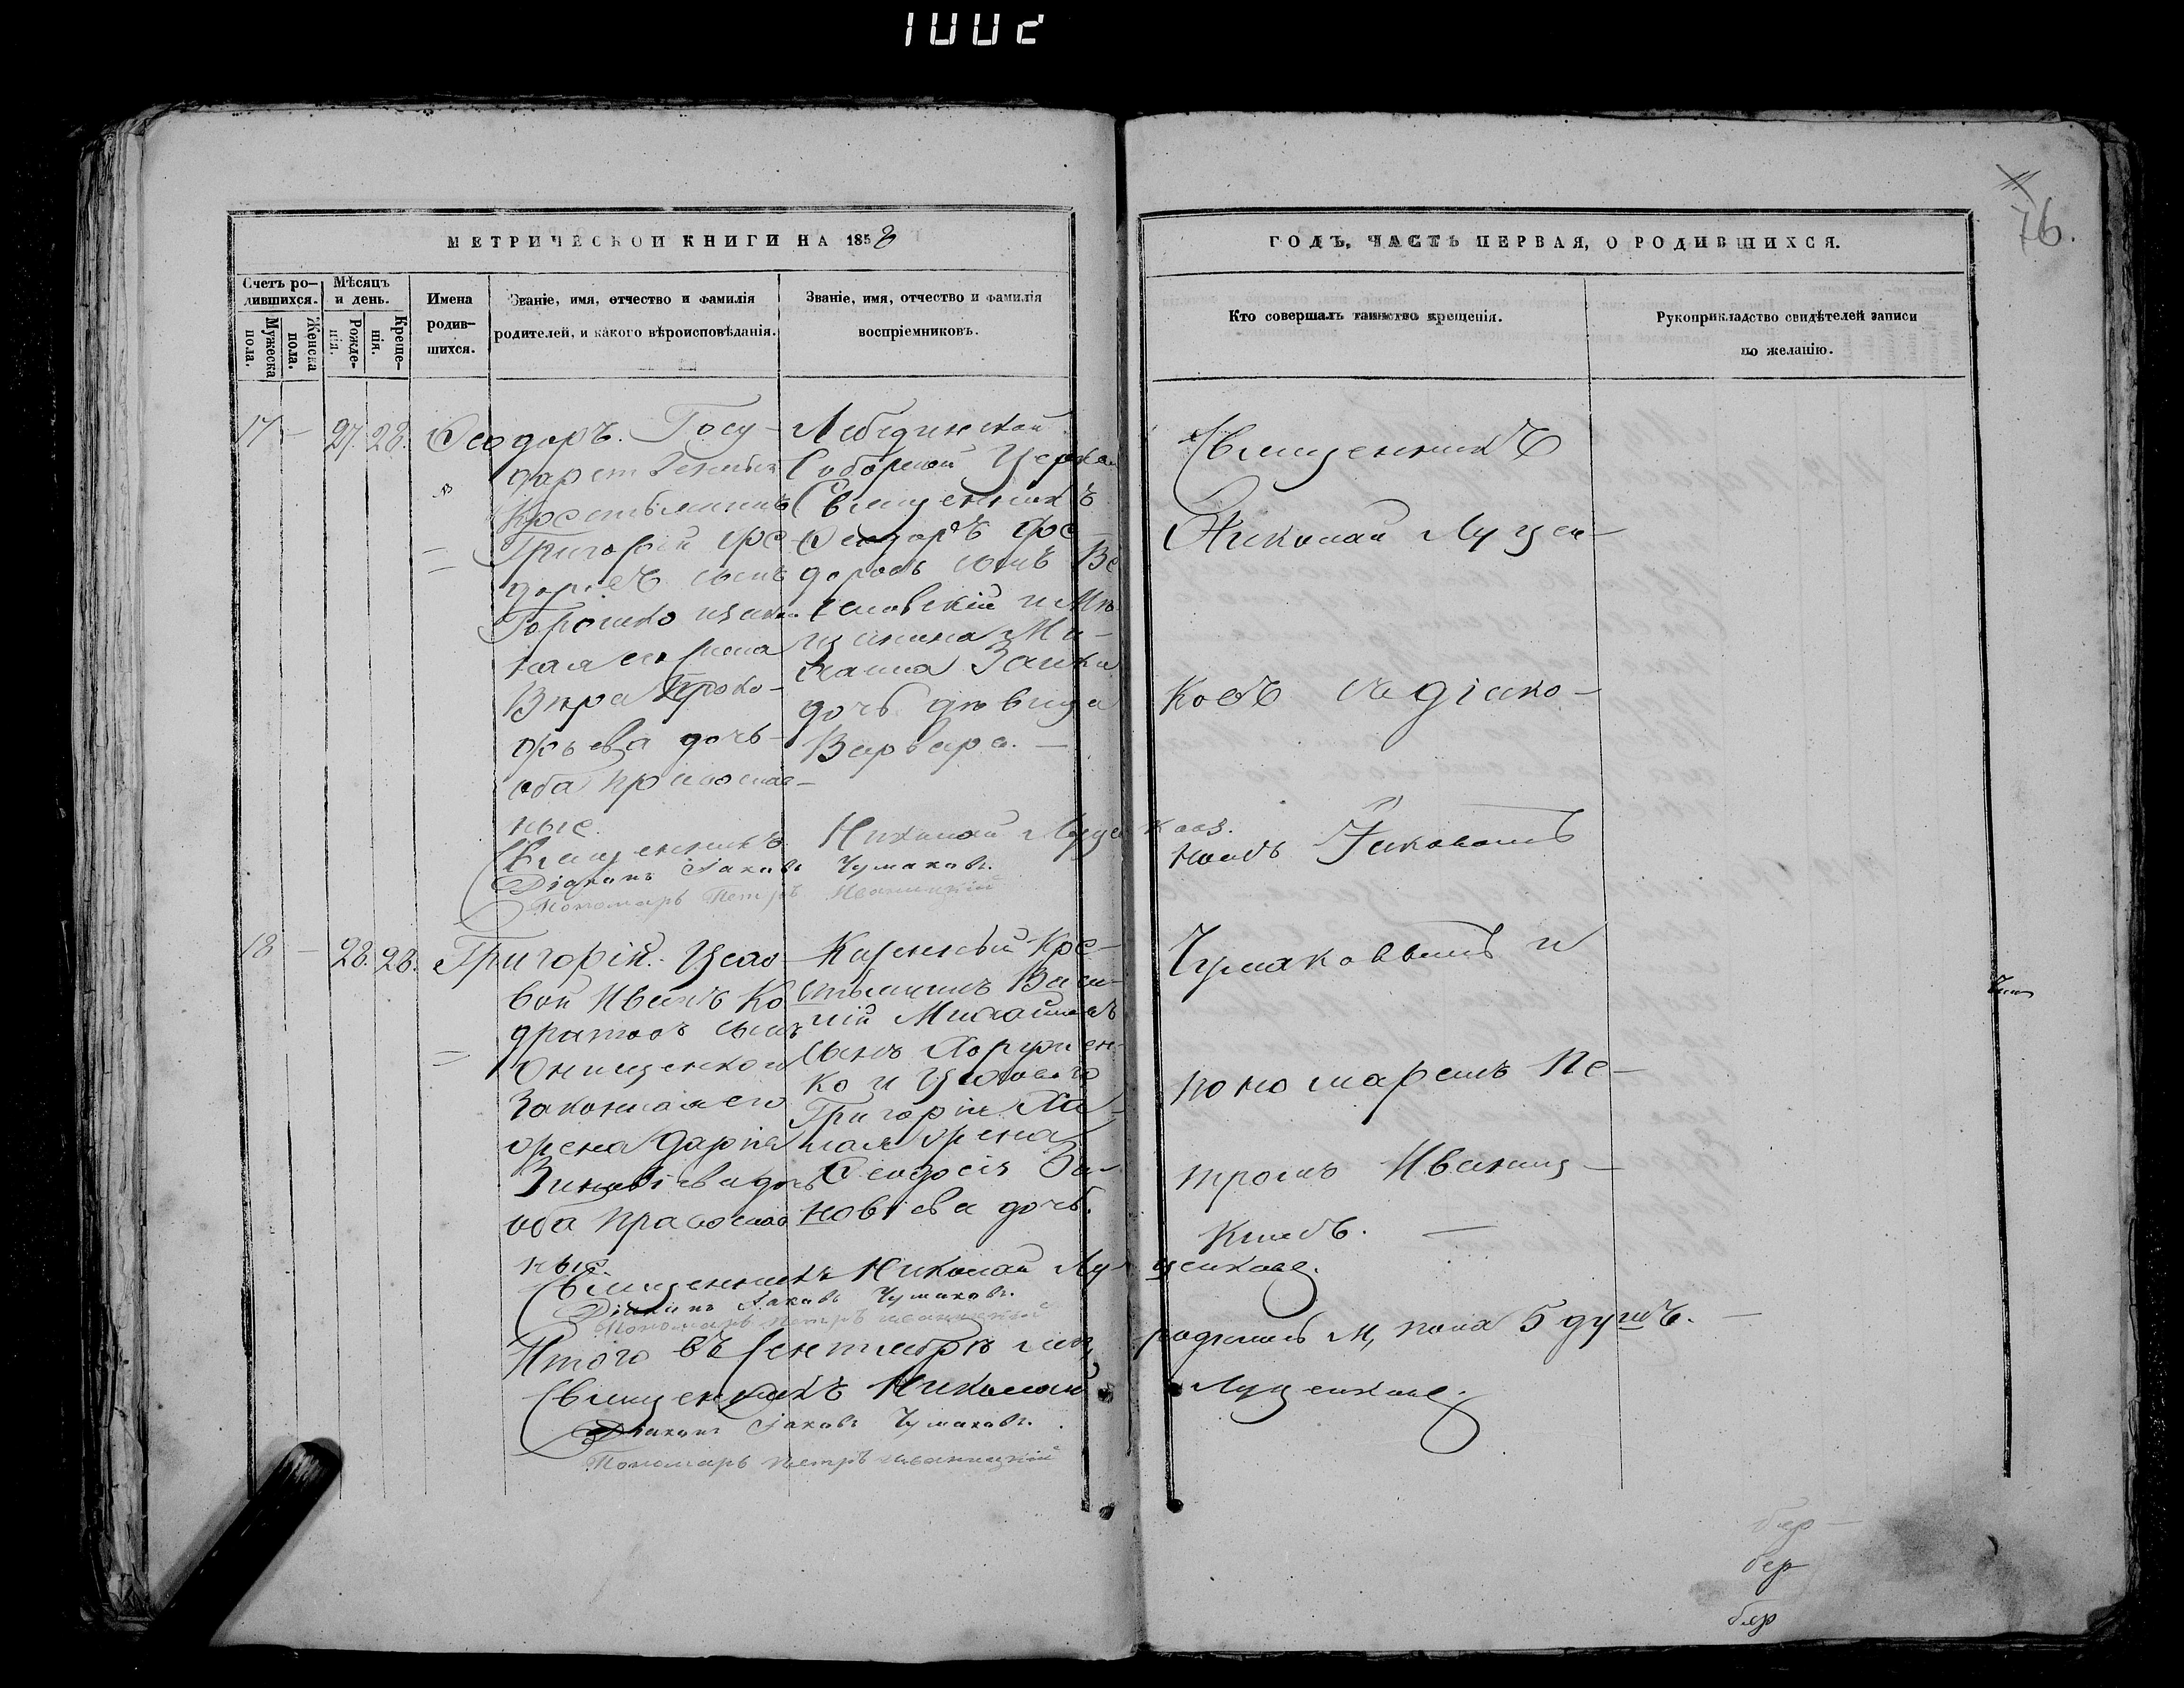 1002
76.
МЕТРИЧЕСКОЙ КНИГИ НА 1858
ГОДЪ, ЧАСТЬ ПЕРВАЯ, О РОДИВШИХСЯ.
Счетъ ро-
дившихся.
Мужеска
пола.
Женска
пола.
Мѣсяцъ
и день.
Рожде-
нія.
Креще-
нія.
Имена
родив-
шихся.
Званіе, имя, отчество и фамилія
родителей, и какого вѣроисповѣданія.
Званіе, имя, отчество и фамилія
воспріемниковъ.
Кто совершалъ таинство крещенія.
Рукоприкладство свидѣтелей записи
по желанію.
17 - 27. 28. Ѳеодоръ.
Госу-
дарственный
Крестьянинъ
Григорій Фе-
доровъ сынъ
Горошко
жена
Вѣра Проко-
фьева дочь
оба православ-
ные.
Лебединской
Соборной Церкви
Священникъ
Ѳеодоръ Фе-
доровъ сынъ Ве
селовскій и Мѣ
щанина Ми-
хаила Заики
дочь дѣвица
Варвара. -
Священникъ Николай Луценков.
Діаконъ Іаковъ Чумаковъ.
Пономарь Петръ Иваницкій
18 - 28. 28. Григорій.
Цехо
вой Иванъ Ко
дратовъ сынъ
Онищенко и
Законная его
жена Дарія
Зиновіева дочь
оба православ
ные.
Казенный Кре-
стьянинъ Васи-
лій Михайловъ
Сынъ Хоружен-
ко и Цеховаго
Григорія
жена
Ѳеодосія Зи-
новіева дочь.
Священникъ Николай Луценков.
Діаконъ Іаковъ Чумаковъ.
Пономарь Петръ Иваницкій
Священникъ
Николай Луцен-
ковъ съ діако-
номъ Іаковомъ
Чумаковымъ и
пономаремъ Пе-
тромъ Иваниц-
кимъ. -
Итого въ Сентябрѣ родилось м, пола 5 душъ. -
Священникъ Николай Луценков.
Діаконъ Іаковъ Чумаковъ.
Пономарь Петръ Иваницкій
бер
бер